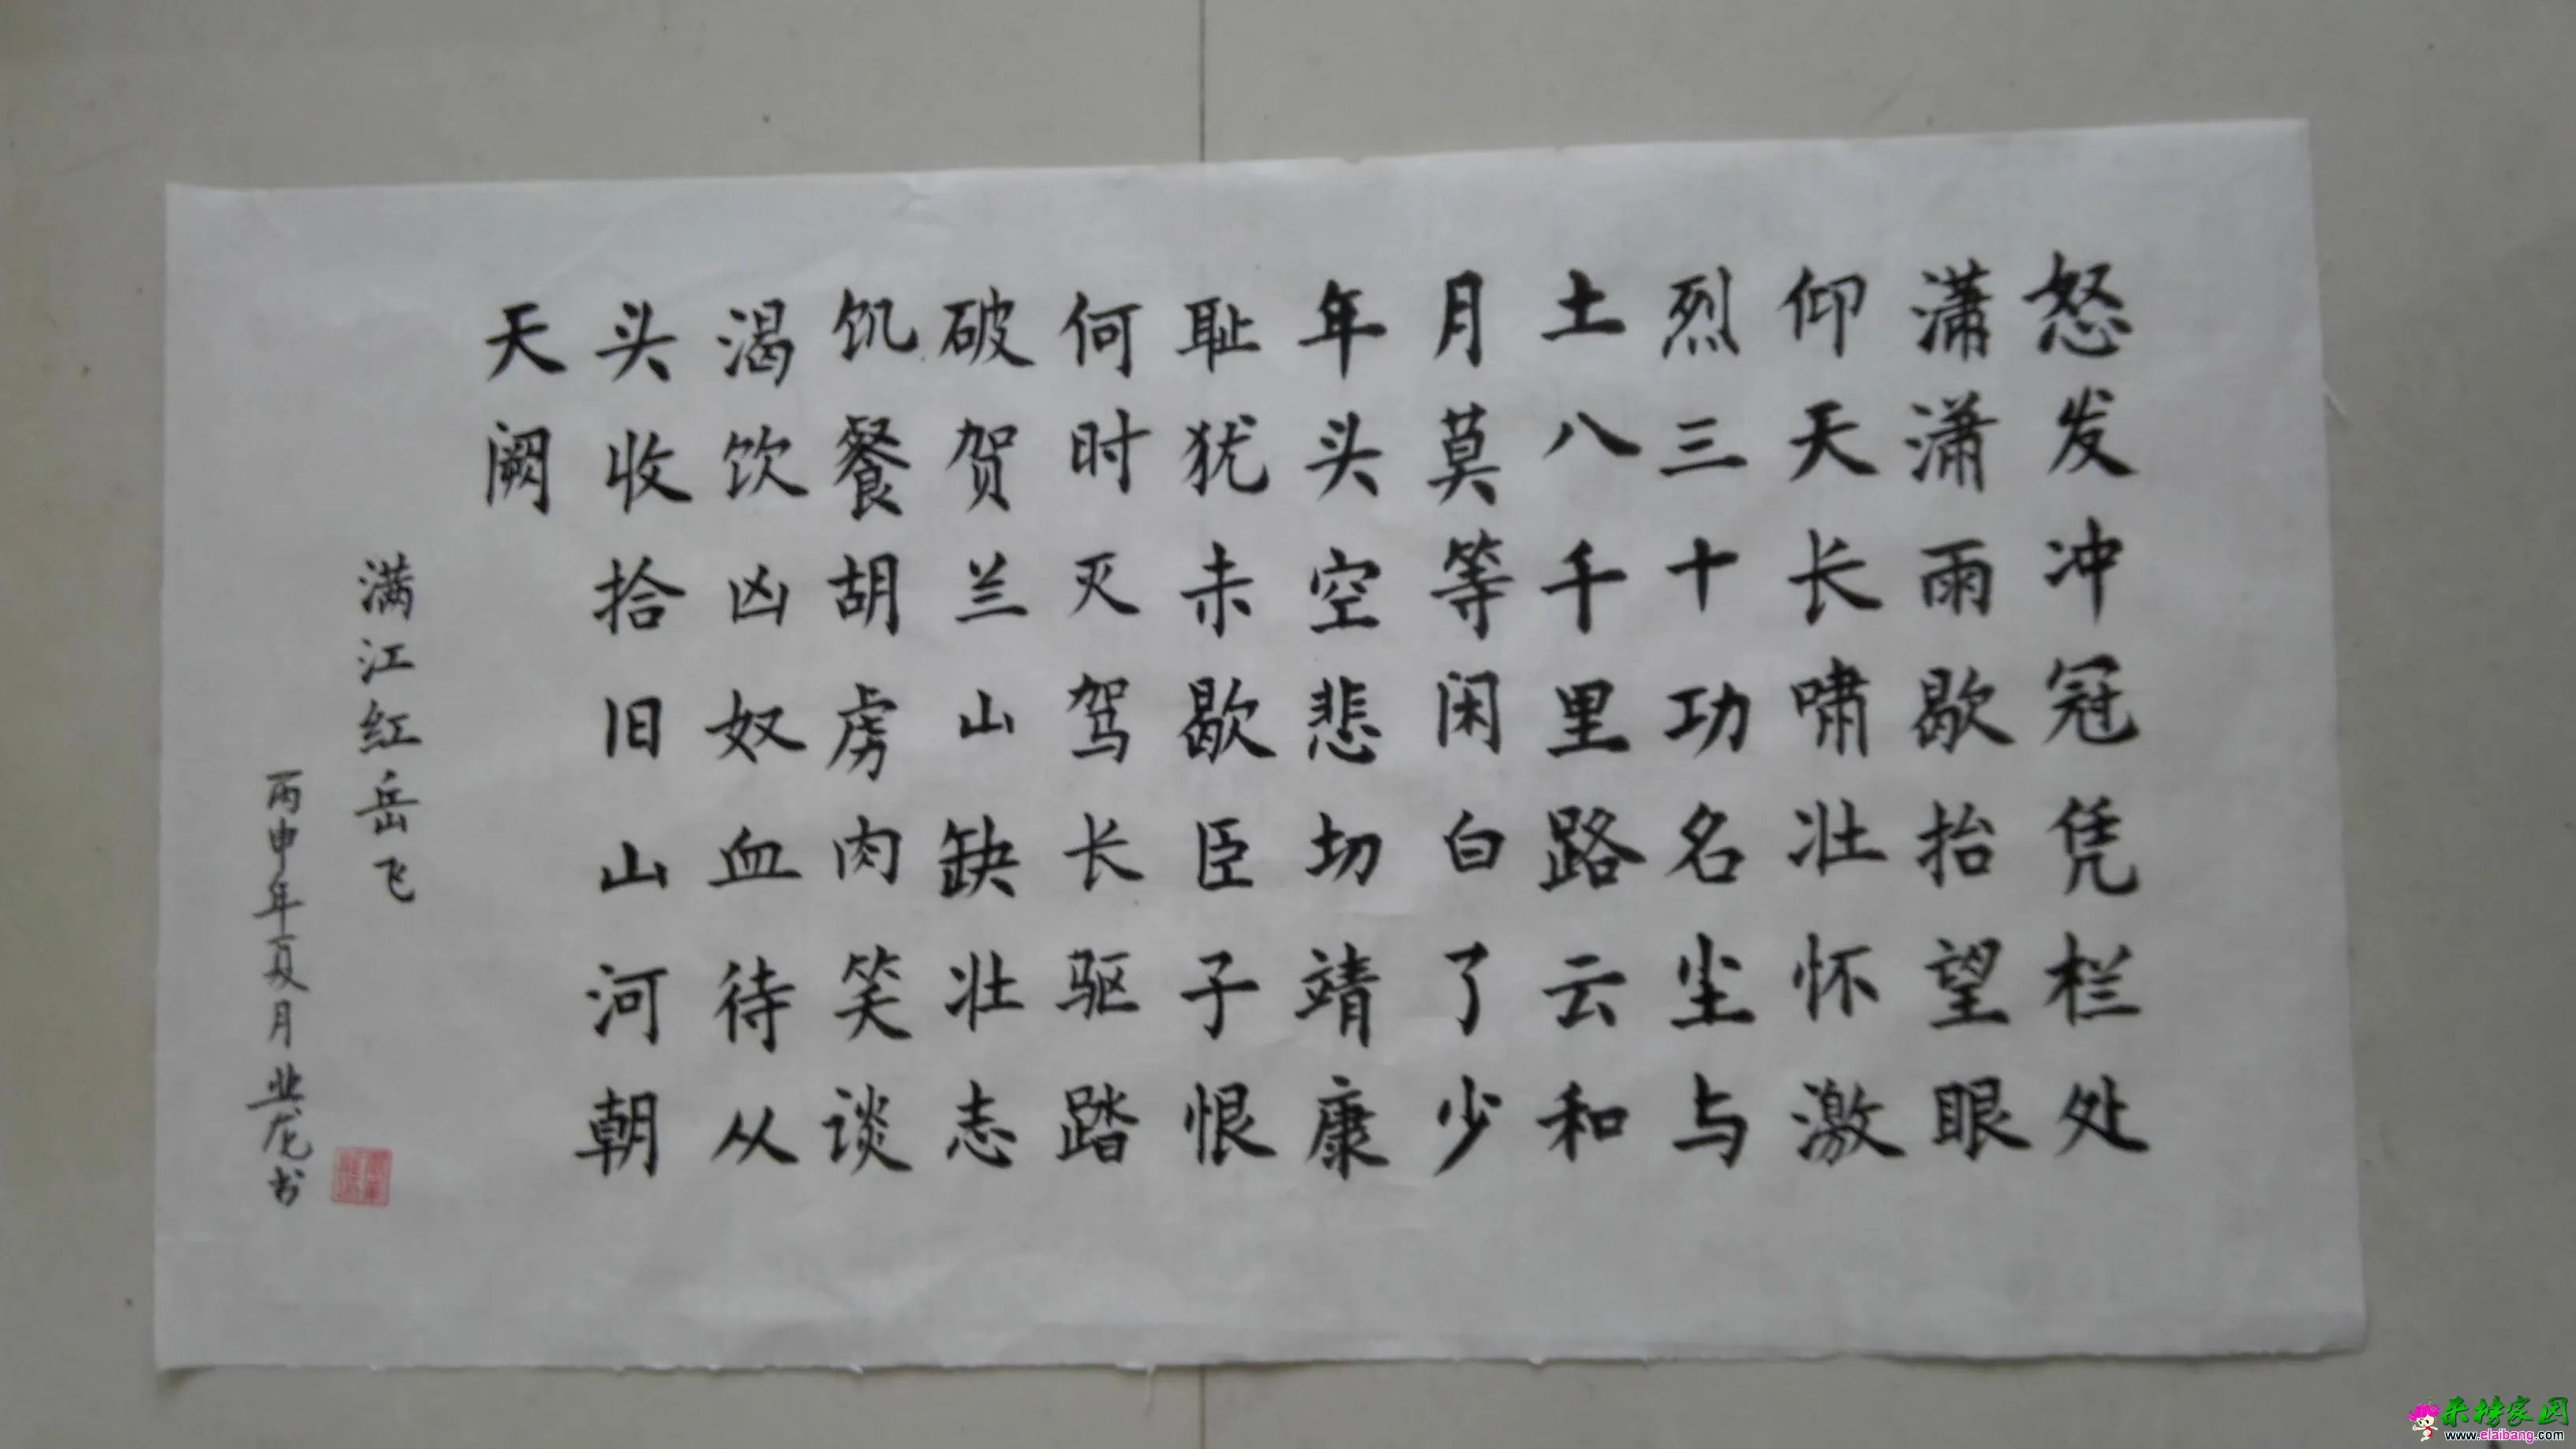 怒发冲冠凭栏处
潇潇雨歇抬望眼
仰天长啸壮怀激
烈三十功名尘与
土八千里路云和
月莫等闲白了少
年头空悲切靖康
耻犹未歇臣子恨
何时灭驾长驱踏
破贺兰山缺壮志
饥餐胡虏肉笑谈
渴饮凶奴血待从
头收拾旧山河朝
天阙
满江红岳飞
丙申年夏月业龙书
来榜家园
www.elaibang.com